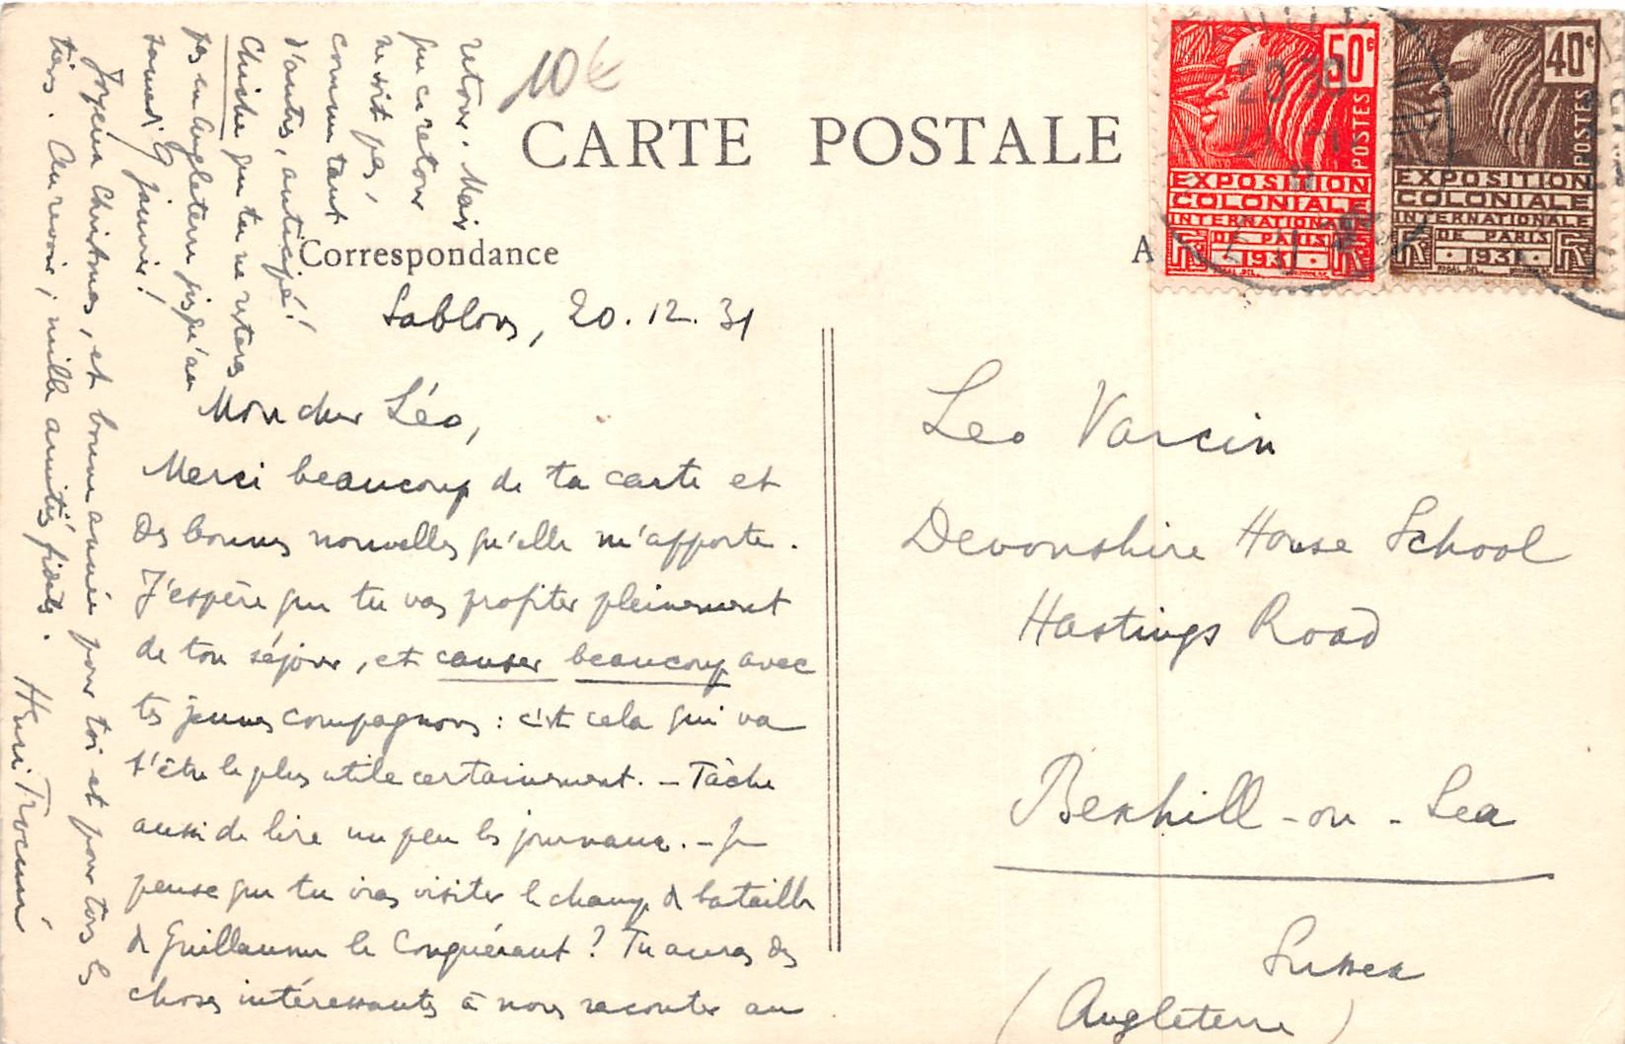 10€
CARTE POSTALE
Correspondance
A
50c
POSTES
EXPOSITION
COLONIALE
INTERNATIONALE
DE PARIS
1931
RF
40c
POSTES
EXPOSITION
COLONIALE
INTERNATIONALE
DE PARIS
1931
RF
20 30
Sablons, 20.12.31
Mon cher Léo,
Merci beaucoup de ta carte et
des bonnes nouvelles qu'elle m'apporte.
J'espère que tu vas profiter pleinement
de ton séjour, et causer beaucoup avec
tes jeunes compagnons : c'est cela qui va
t'être le plus utile certainement. – Tâche
aussi de lire un peu les journaux. – Je
pense que tu iras visiter le champ de bataille
de Guillaume le Conquérant ? Tu auras des
choses intéressantes à nous raconter au
retour. Mais
que ce retour
ne soit pas,
comme tant
d'autres, anticipé !
Chiche que tu ne resteras
pas en Angleterre jusqu'au
samedi 9 janvier !
Joyeux Christmas, et bonne année pour toi et pour tous les
tiens. Au revoir, mille amitiés fidèles.
Henri Trocmé
Leo Varcin
Devonshire House School
Hastings Road
Bexhill-on-Sea
Sussex
(Angleterre)